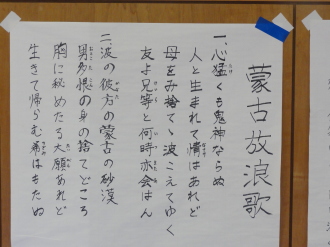 蒙古放浪歌
一、心猛くも鬼神ならぬ
人と生まれて情はあれど
母をみ捨てゝ波こえてゆく
友よ兄等と何時亦会はん
二、波の彼方の蒙古の砂漠
男多恨の身の捨てどころ
胸に秘めたる大願あれど
生きて帰らむ希はもたぬ